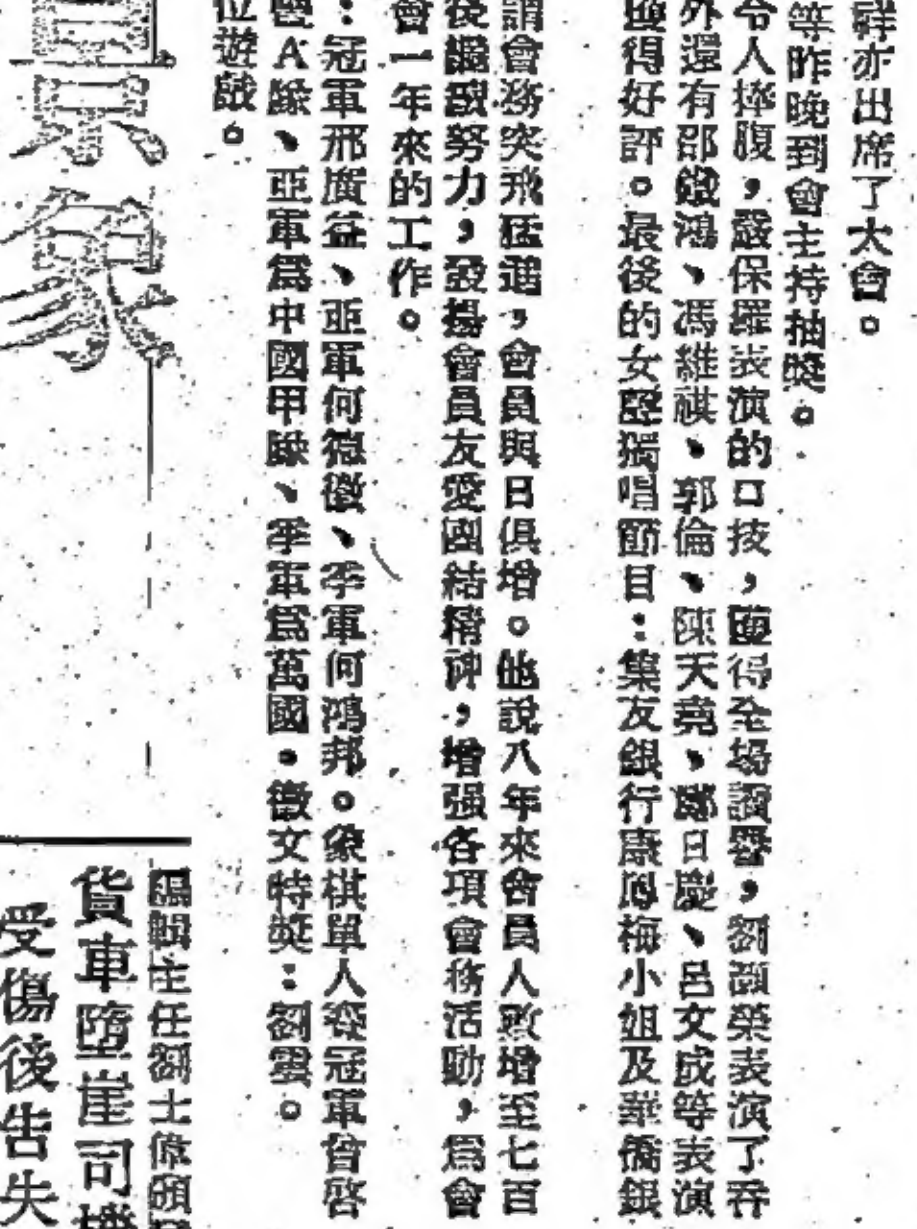 祥亦出席了大會。
等昨晚到會主持抽獎。
令人捧腹，嚴保羅表演的口技，博得全場讚譽，劉頴榮表演了吞
外還有邵鐵鴻、馮維祺、郭倫、陳天堯、鄭日慶、呂文成等表演
博得好評。最後的女聲獨唱節目：集友銀行康鳳梅小姐及華僑銀
謂會務突飛猛進，會員與日俱增。他說八年來會員人數增至七百
後繼續努力，發揚會員友愛團結精神，增强各項會務活動，爲會
會一年來的工作。
：冠軍邢廣益、亞軍何德徵、季軍何鴻邦。象棋單人賽冠軍曾啓
A隊、亞軍爲中國甲隊、季軍爲萬國。徵文特獎：劉雲。
位遊戲。
景象
編輯主任劉士偉頒
貨車墮崖司機
受傷後告失